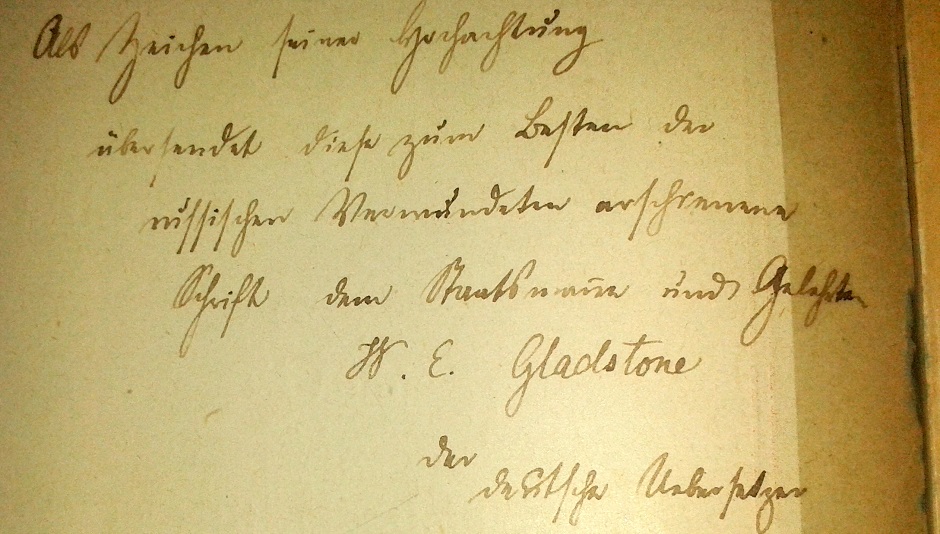 Als Zeichen seiner Hochachtung
übersendet diese zum Besten der
russischen Verwundeten erschienene
Schrift dem Staatsmanne und Gelehrten
W. E. Gladstone
der
deutsche Uebersetzer